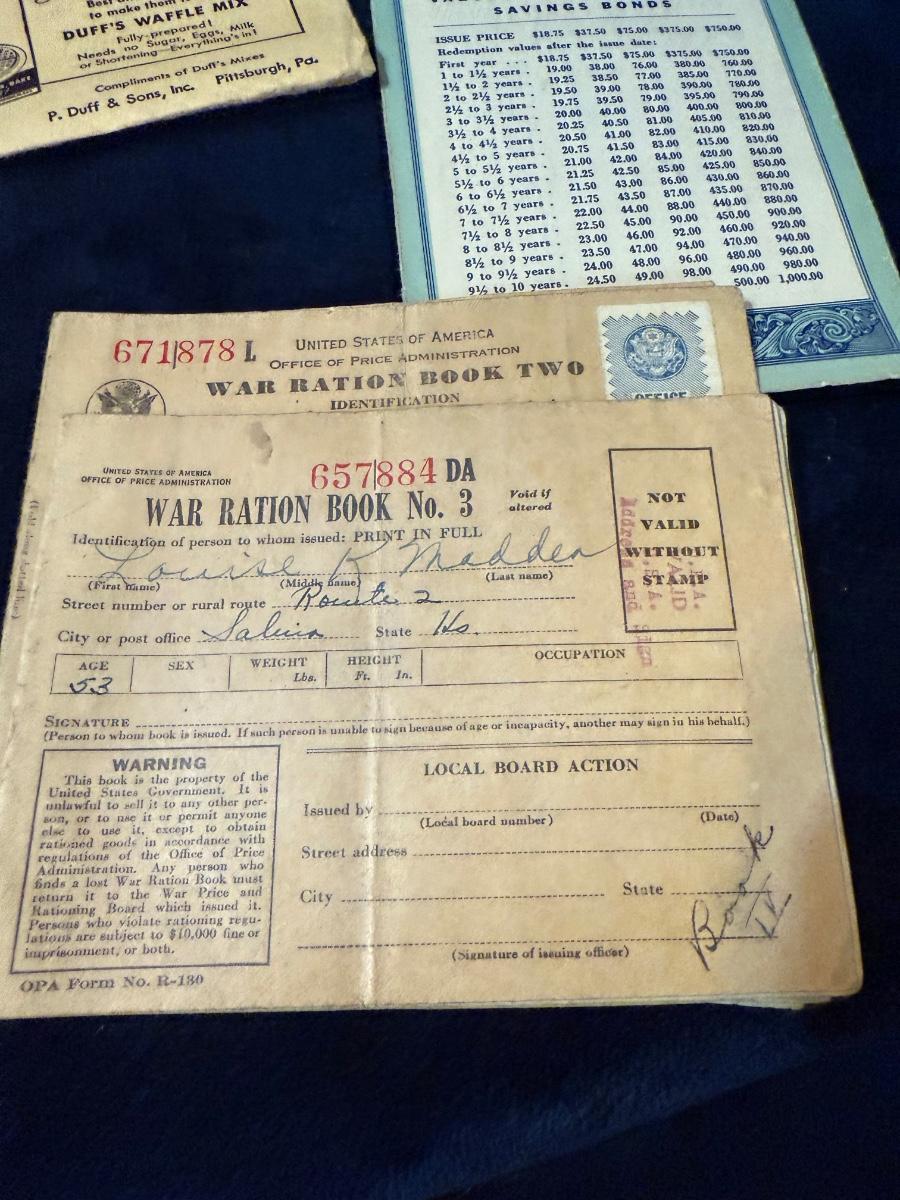 to make them
DUFF'S WAFFLE MIX
Fully-prepared!
Needs no Sugar, Eggs, Milk
or Shortening—Everything's in!
Compliments of Duff's Mixes
P. Duff & Sons, Inc. Pittsburgh, Pa.
SAVINGS BONDS
ISSUE PRICE $18.75 $37.50 $75.00 $375.00 $750.00
Redemption values after the issue date:
First year . . . $18.75 $37.50 $75.00 $375.00 $750.00
1 to 1½ years . 19.00 38.00 76.00 380.00 760.00
1½ to 2 years . 19.25 38.50 77.00 385.00 770.00
2 to 2½ years . 19.50 39.00 78.00 390.00 780.00
2½ to 3 years . 19.75 39.50 79.00 395.00 790.00
3 to 3½ years . 20.00 40.00 80.00 400.00 800.00
3½ to 4 years . 20.25 40.50 81.00 405.00 810.00
4 to 4½ years . 20.50 41.00 82.00 410.00 820.00
4½ to 5 years . 20.75 41.50 83.00 415.00 830.00
5 to 5½ years . 21.00 42.00 84.00 420.00 840.00
5½ to 6 years . 21.25 42.50 85.00 425.00 850.00
6 to 6½ years . 21.50 43.00 86.00 430.00 860.00
6½ to 7 years . 21.75 43.50 87.00 435.00 870.00
7 to 7½ years . 22.00 44.00 88.00 440.00 880.00
7½ to 8 years . 22.50 45.00 90.00 450.00 900.00
8 to 8½ years . 23.00 46.00 92.00 460.00 920.00
8½ to 9 years . 23.50 47.00 94.00 470.00 940.00
9 to 9½ years . 24.00 48.00 96.00 480.00 960.00
9½ to 10 years . 24.50 49.00 98.00 490.00 980.00
500.00 1,000.00
671878 L
UNITED STATES OF AMERICA
OFFICE OF PRICE ADMINISTRATION
WAR RATION BOOK TWO
IDENTIFICATION
OFFICE
UNITED STATES OF AMERICA
OFFICE OF PRICE ADMINISTRATION
657884 DA
WAR RATION BOOK No. 3
Void if
altered
NOT
VALID
WITHOUT
STAMP
Identification of person to whom issued: PRINT IN FULL
Louise K Madden
(First name) (Middle name) (Last name)
Street number or rural route Route 2
City or post office Salina State Ks.
AGE SEX WEIGHT Lbs. HEIGHT Ft. In. OCCUPATION
53
SIGNATURE
(Person to whom book is issued. If such person is unable to sign because of age or incapacity, another may sign in his behalf.)
WARNING
This book is the property of the
United States Government. It is
unlawful to sell it to any other per-
son, or to use it or permit anyone
else to use it, except to obtain
rationed goods in accordance with
regulations of the Office of Price
Administration. Any person who
finds a lost War Ration Book must
return it to the War Price and
Rationing Board which issued it.
Persons who violate rationing regu-
lations are subject to $10,000 fine or
imprisonment, or both.
LOCAL BOARD ACTION
Issued by
(Local board number) (Date)
Street address
City State
(Signature of issuing officer)
Book
IV
OPA Form No. R-130